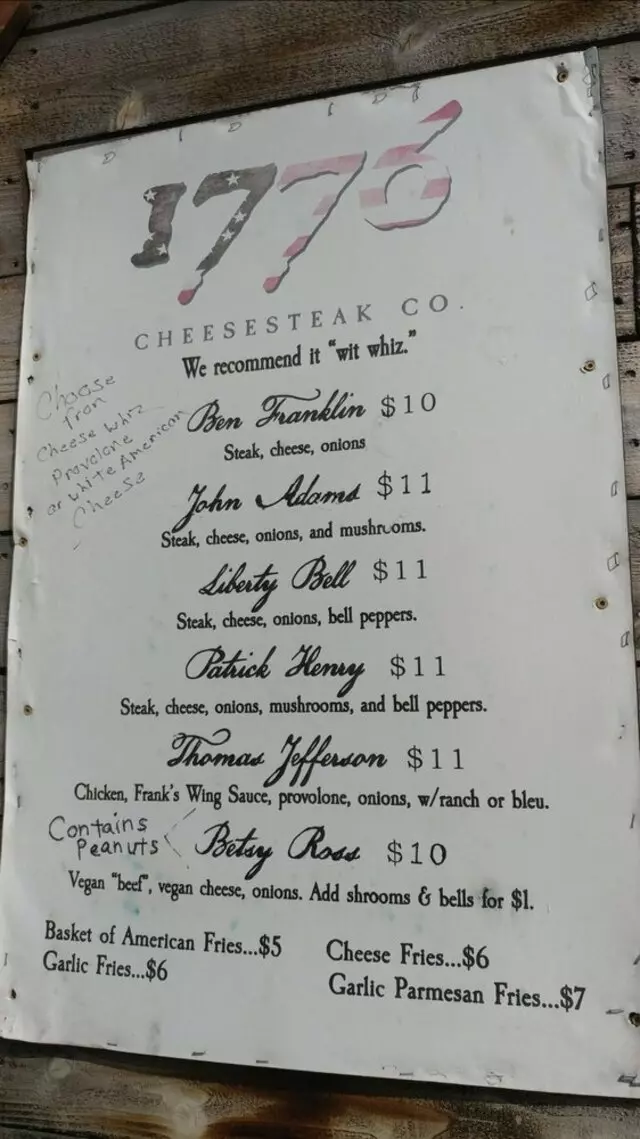 1776
CHEESESTEAK CO.
We recommend it "wit whiz."
Choose
from
Cheese Whiz
Provolone
or white American
Cheese
Ben Franklin $10
Steak, cheese, onions
John Adams $11
Steak, cheese, onions, and mushrooms.
Liberty Bell $11
Steak, cheese, onions, bell peppers.
Patrick Henry $11
Steak, cheese, onions, mushrooms, and bell peppers.
Thomas Jefferson $11
Chicken, Frank's Wing Sauce, provolone, onions, w/ranch or bleu.
Contains
Peanuts
Betsy Ross $10
Vegan "beef", vegan cheese, onions. Add shrooms & bells for $1.
Basket of American Fries...$5
Garlic Fries...$6
Cheese Fries...$6
Garlic Parmesan Fries...$7